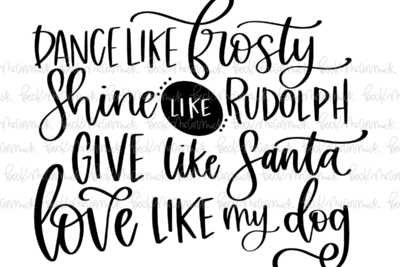 DANCE LIKE frosty
Shine LIKE RUDOLPH
GIVE like Santa
love LIKE my dog